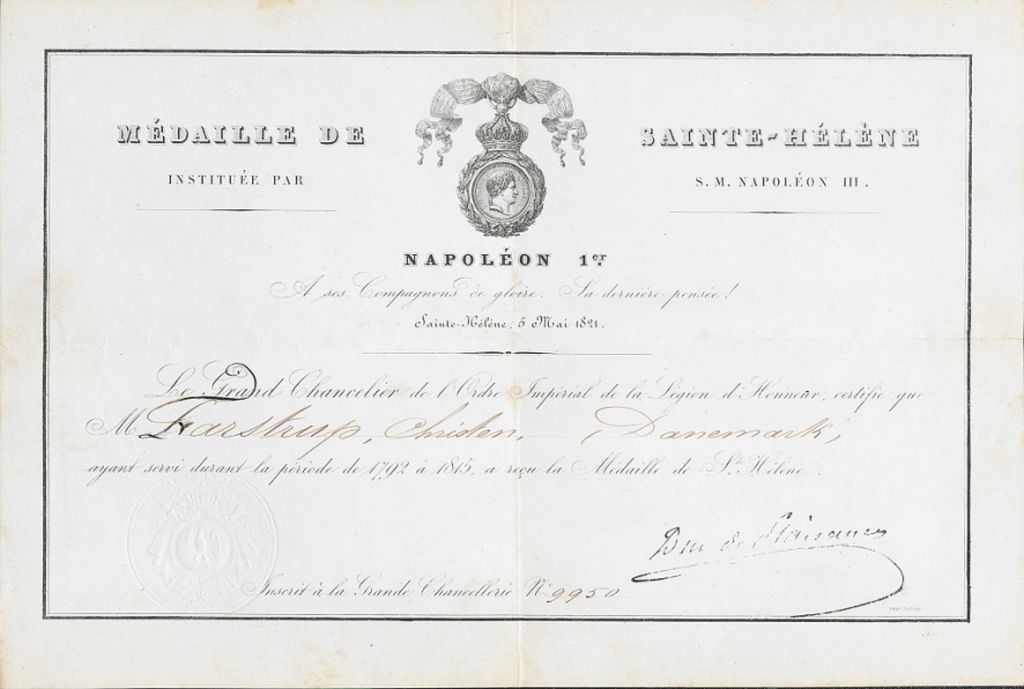 MÉDAILLE DE SAINTE-HÉLÈNE
INSTITUÉE PAR S. M. NAPOLÉON III.
NAPOLÉON 1er
A ses Compagnons de gloire. Sa dernière pensée!
Sainte-Hélène, 5 Mai 1821.
Le Grand Chancelier de l'Ordre Impérial de la Légion d'Honneur, certifie que
M Farstrup, Christen, (Danemark,
ayant servi durant la période de 1792 à 1815, a reçu la Médaille de Ste Hélène.
Duc de Plaisance
Inscrit à la Grande Chancellerie No 9950